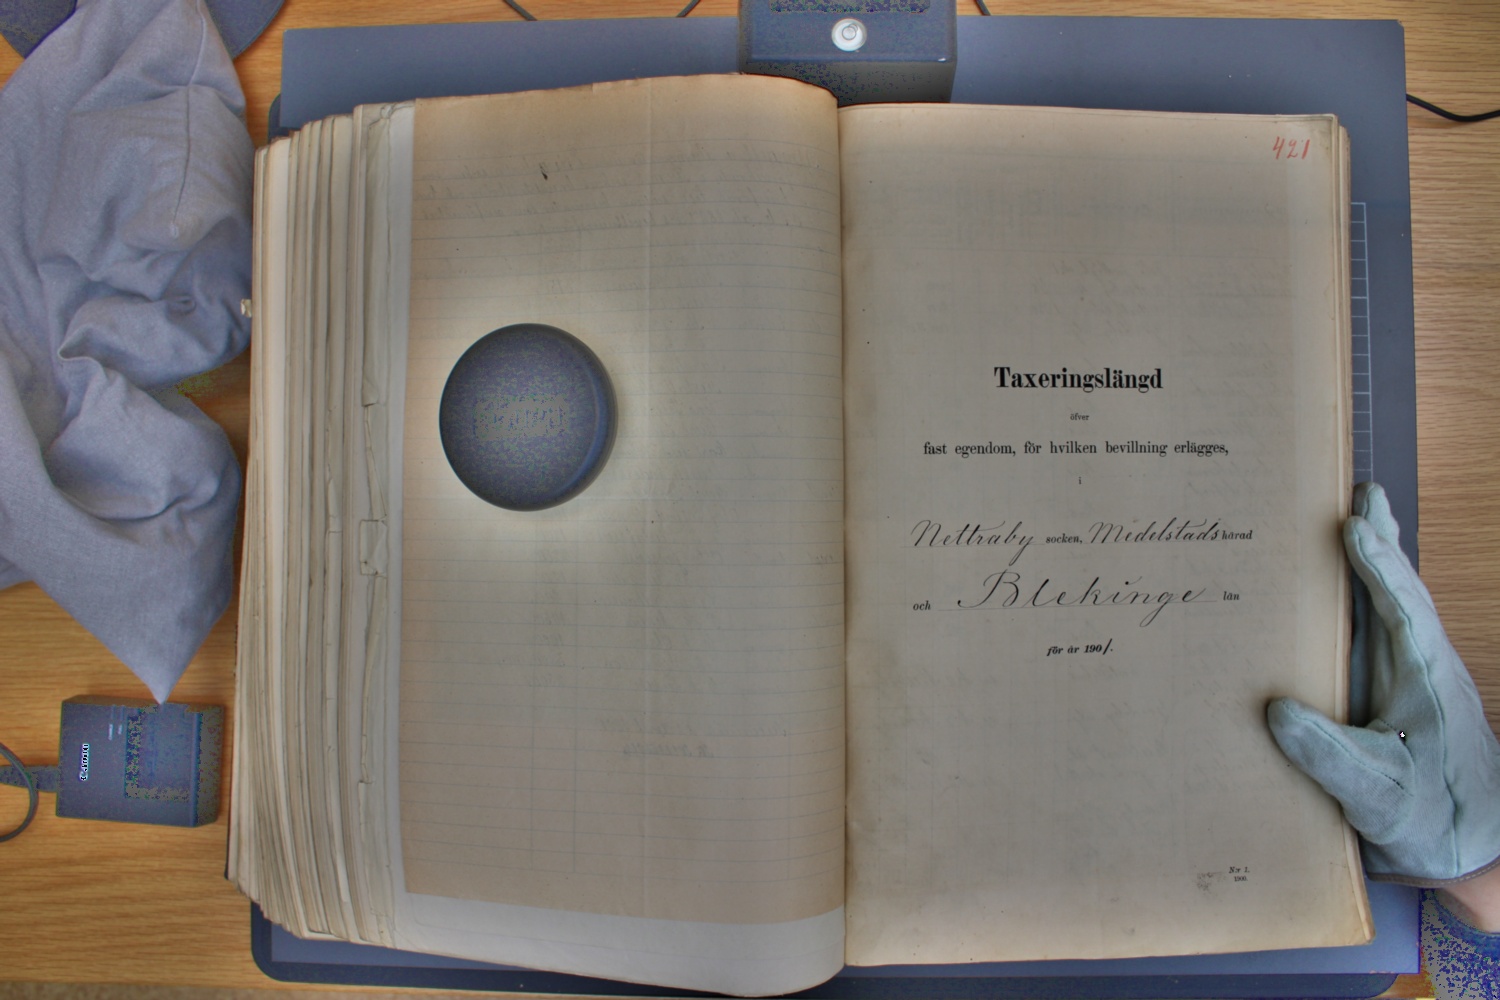 421
Taxeringslängd
öfver
fast egendom, för hvilken bevillning erlägges,
i
Nettraby socken, Medelstads härad
och Blekinge län
för år 1901.
N:r 1.
1900.